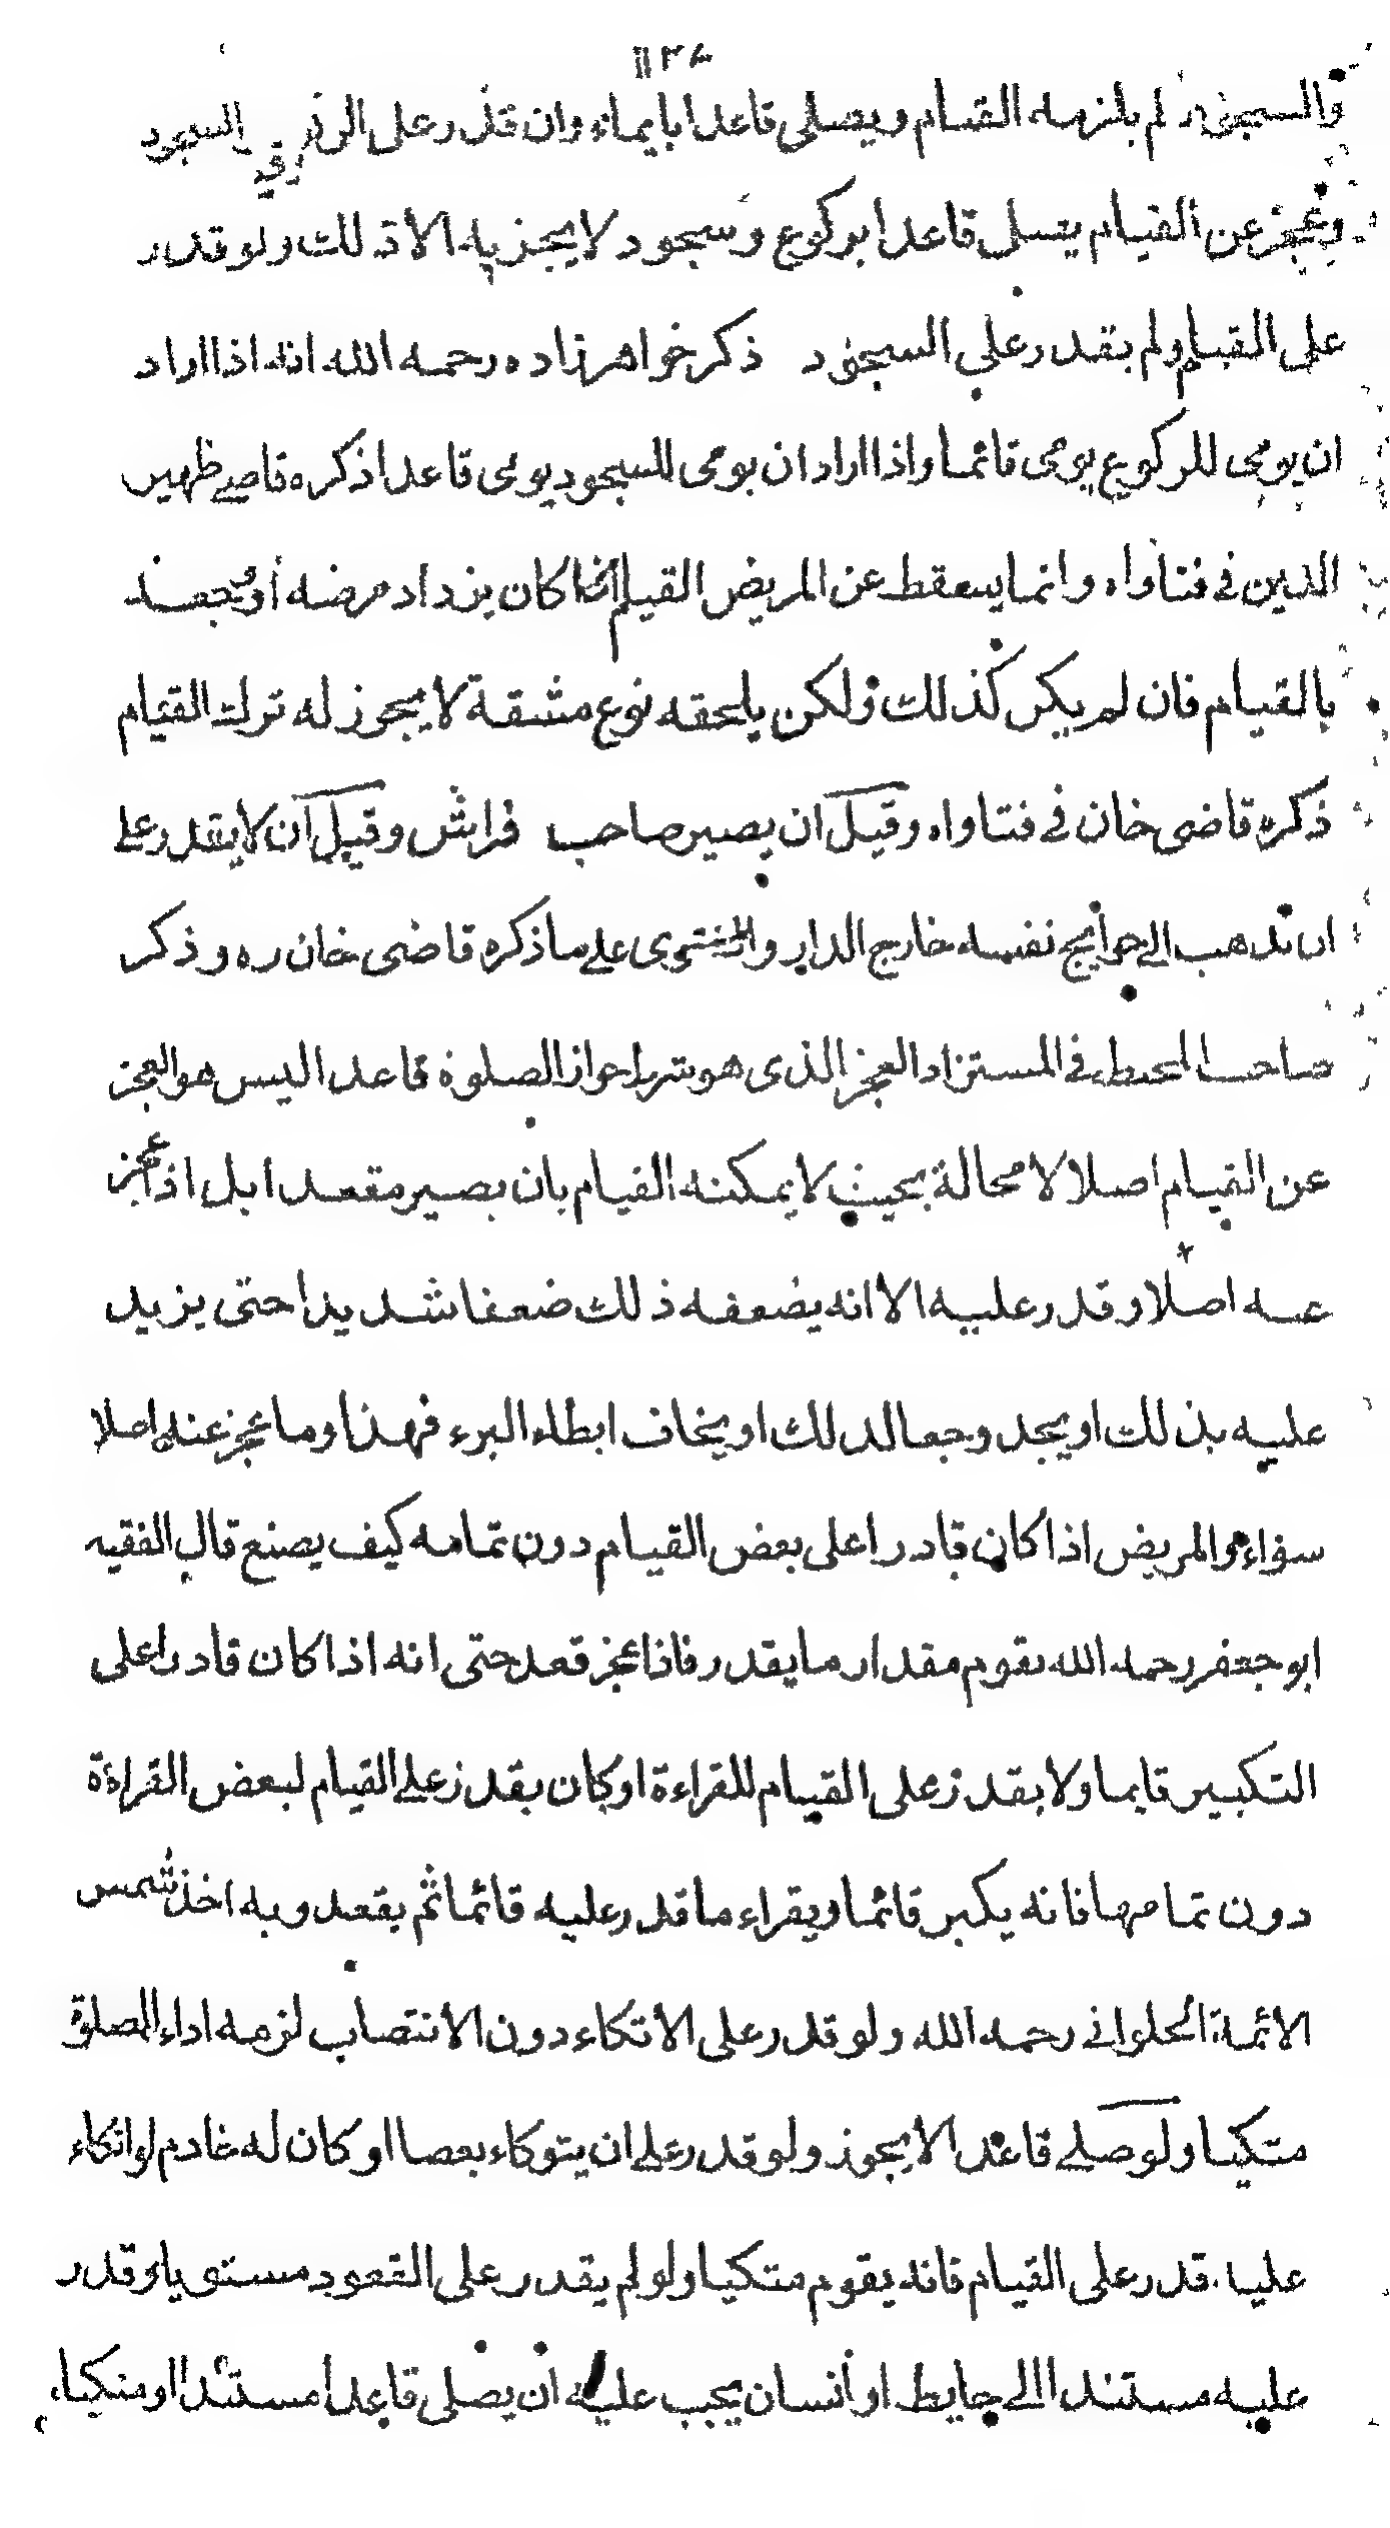 والسجود لم يلزمه القيام ويصلى قاعدا بايماء وان قدر على الركوع والسجود
وعجز عن القيام يصلى قاعدا بركوع وسجود لا يجزيه الا ذلك ولو قدر
على القيام ولم يقدر على السجود ذكر خواهرزاده رحمه الله انه اذا اراد
ان يومى للركوع يومى قائما واذا اراد ان يومى للسجود يومى قاعدا ذكره قاضى ظهير
الدين فى فتاواه وانما يسقط عن المريض القيام اذا كان يزداد مرضه او
بالقيام فان لم يكن كذلك ولكن يلحقه نوع مشقة لا يجوز له ترك القيام
ذكره قاضى خان فى فتاواه وقيل ان يصير صاحب فراش وقيل ان لا يقدر على
ان يذهب الى حوايج نفسه خارج الدار والفتوى على ما ذكره قاضى خان ره وذكر
صاحب المحيط فى المستزاد العجز الذى هو شرط جواز الصلوة قاعدا ليس هو العجز
عن القيام اصلا لا محالة بحيث لا يمكنه القيام بان يصير مقعدا بل اذا عجز
عنه اصلا و قدر عليه الا انه يضعفه ذلك ضعفا شديدا حتى يزيد
عليه بذلك او يجد وجعا لذلك او يخاف ابطاء البرء فهذا وما عجز عنه اصلا
سواء والمريض اذا كان قادرا على بعض القيام دون تمامه كيف يصنع قال الفقيه
ابو جعفر رحمه الله يقوم مقدار ما يقدر فاذا عجز قعد حتى انه اذا كان قادرا على
التكبير قايما ولا يقدر على القيام للقراءة او كان يقدر على القيام لبعض القراءة
دون تمامها فانه يكبر قائما ويقراء ما قدر عليه قائما ثم يقعد وبه اخذ شمس
الائمة الحلوانى رحمه الله ولو قدر على الاتكاء دون الانتصاب لزمه اداء الصلوة
متكيا ولو صلى قاعدا لا يجوز ولو قدر على ان يتوكاء بعصا او كان له خادم لو اتكاء
عليه قدر على القيام فانه يقوم متكيا ولو لم يقدر على القعود مستويا وقدر
عليه مستندا الى حايط او انسان يجب عليه ان يصلى قاعدا مستندا او متكيا